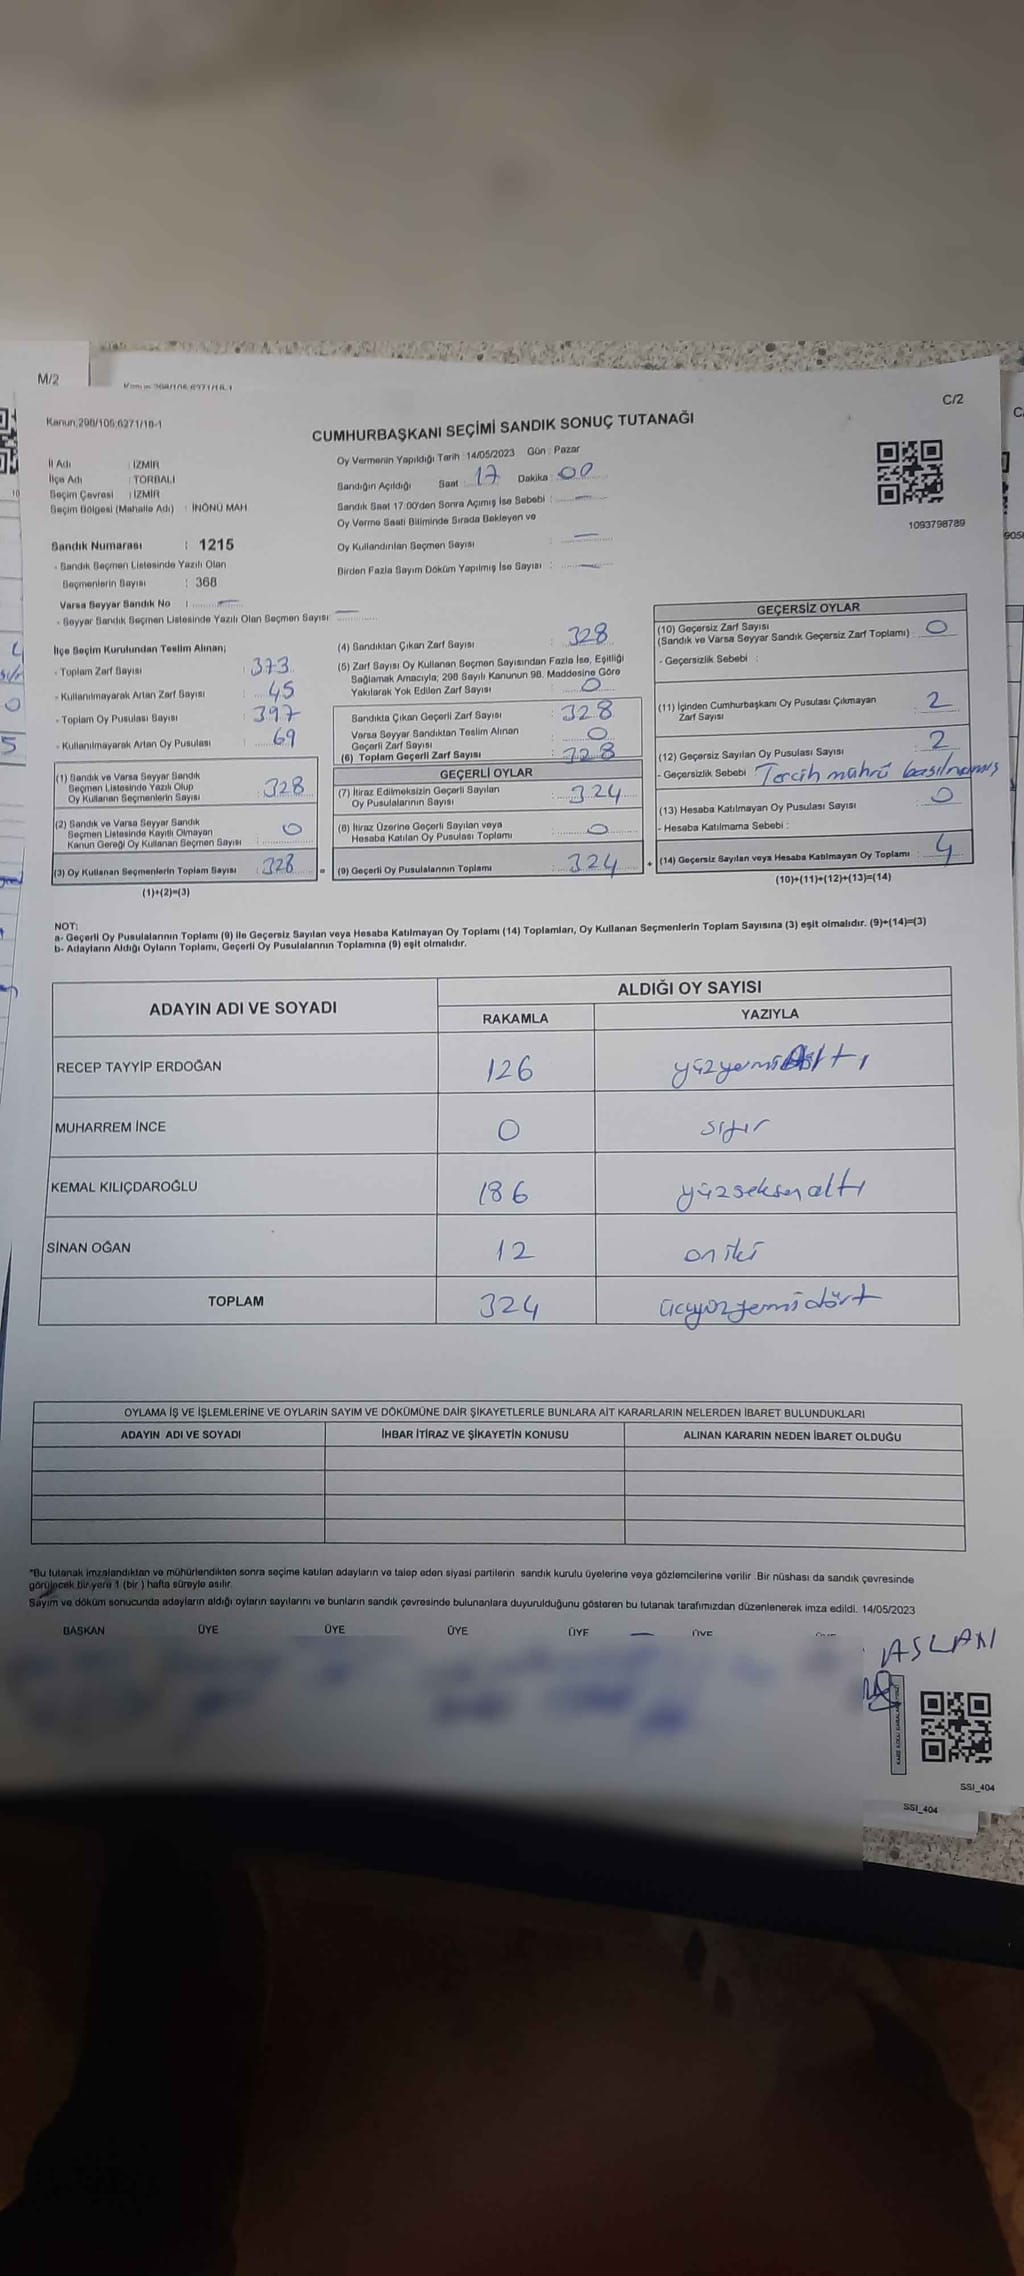 M/2
C/2
Kanun:298/105;6271/18-1
CUMHURBAŞKANI SEÇİMİ SANDIK SONUÇ TUTANAĞI
İl Adı : İZMİR
İlçe Adı : TORBALI
Seçim Çevresi : İZMİR
Seçim Bölgesi (Mahalle Adı) : İNÖNÜ MAH.
Sandık Numarası : 1215
- Sandık Seçmen Listesinde Yazılı Olan
Seçmenlerin Sayısı : 368
Varsa Seyyar Sandık No : —
- Seyyar Sandık Seçmen Listesinde Yazılı Olan Seçmen Sayısı : —
Oy Vermenin Yapıldığı Tarih : 14/05/2023 Gün : Pazar
Sandığın Açıldığı Saat : 17 Dakika : 00
Sandık Saat 17.00'den Sonra Açımış İse Sebebi : —
Oy Verme Saati Bitiminde Sırada Bekleyen ve
Oy Kullandırılan Seçmen Sayısı : —
Birden Fazla Sayım Döküm Yapılmış İse Sayısı : —
1093798789
İlçe Seçim Kurulundan Teslim Alınan;
- Toplam Zarf Sayısı : 373
- Kullanılmayarak Artan Zarf Sayısı : 45
- Toplam Oy Pusulası Sayısı : 397
- Kullanılmayarak Artan Oy Pusulası : 69
(1) Sandık ve Varsa Seyyar Sandık
Seçmen Listesinde Yazılı Olup
Oy Kullanan Seçmenlerin Sayısı : 328
(2) Sandık ve Varsa Seyyar Sandık
Seçmen Listesinde Kayıtlı Olmayan
Kanun Gereği Oy Kullanan Seçmen Sayısı : 0
(3) Oy Kullanan Seçmenlerin Toplam Sayısı : 328
(1)+(2)=(3)
(4) Sandıktan Çıkan Zarf Sayısı : 328
(5) Zarf Sayısı Oy Kullanan Seçmen Sayısından Fazla İse, Eşitliği
Sağlamak Amacıyla; 298 Sayılı Kanunun 98. Maddesine Göre
Yakılarak Yok Edilen Zarf Sayısı : 0
Sandıkta Çıkan Geçerli Zarf Sayısı : 328
Varsa Seyyar Sandıktan Teslim Alınan
Geçerli Zarf Sayısı : 0
(6) Toplam Geçerli Zarf Sayısı : 328
GEÇERLİ OYLAR
(7) İtiraz Edilmeksizin Geçerli Sayılan
Oy Pusulalarının Sayısı : 324
(8) İtiraz Üzerine Geçerli Sayılan veya
Hesaba Katılan Oy Pusulası Toplamı : 0
(9) Geçerli Oy Pusulalarının Toplamı : 324
GEÇERSİZ OYLAR
(10) Geçersiz Zarf Sayısı
(Sandık ve Varsa Seyyar Sandık Geçersiz Zarf Toplamı) : 0
- Geçersizlik Sebebi :
(11) İçinden Cumhurbaşkanı Oy Pusulası Çıkmayan
Zarf Sayısı : 2
(12) Geçersiz Sayılan Oy Pusulası Sayısı : 2
- Geçersizlik Sebebi : Tercih mührü basılmamış
(13) Hesaba Katılmayan Oy Pusulası Sayısı : 0
- Hesaba Katılmama Sebebi :
(14) Geçersiz Sayılan veya Hesaba Katılmayan Oy Toplamı : 4
(10)+(11)+(12)+(13)=(14)
NOT:
a- Geçerli Oy Pusulalarının Toplamı (9) ile Geçersiz Sayılan veya Hesaba Katılmayan Oy Toplamı (14) Toplamları, Oy Kullanan Seçmenlerin Toplam Sayısına (3) eşit olmalıdır. (9)+(14)=(3)
b- Adayların Aldığı Oyların Toplamı, Geçerli Oy Pusulalarının Toplamına (9) eşit olmalıdır.
ADAYIN ADI VE SOYADI
ALDIĞI OY SAYISI
RAKAMLA YAZIYLA
RECEP TAYYİP ERDOĞAN 126 yüzyirmialtı
MUHARREM İNCE 0 sıfır
KEMAL KILIÇDAROĞLU 186 yüzseksenaltı
SİNAN OĞAN 12 oniki
TOPLAM 324 üçyüzyirmidört
OYLAMA İŞ VE İŞLEMLERİNE VE OYLARIN SAYIM VE DÖKÜMÜNE DAİR ŞİKAYETLERLE BUNLARA AİT KARARLARIN NELERDEN İBARET BULUNDUKLARI
ADAYIN ADI VE SOYADI İHBAR İTİRAZ VE ŞİKAYETİN KONUSU ALINAN KARARIN NEDEN İBARET OLDUĞU
*Bu tutanak imzalandıktan ve mühürlendikten sonra seçime katılan adayların ve talep eden siyasi partilerin sandık kurulu üyelerine veya gözlemcilerine verilir. Bir nüshası da sandık çevresinde
görülecek bir yere 1 (bir ) hafta süreyle asılır.
Sayım ve döküm sonucunda adayların aldığı oyların sayılarını ve bunların sandık çevresinde bulunanlara duyurulduğunu gösteren bu tutanak tarafımızdan düzenlenerek imza edildi. 14/05/2023
BAŞKAN ÜYE ÜYE ÜYE ÜYE ÜYE
ASLANI
SSI_404
SSI_404